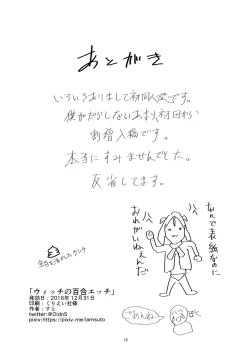 あとがき
いろいろありまして初同人誌です。
僕がだらしないあまり初回から
割増入稿です。
本当にすみませんでした。
反省してます。
なんで表紙なのに
おれがいねぇんだ
ごめんね
「ウィッチの百合エッチ」
発効日：2016年12月31日
印刷：くりえい社様
作者：すと
twitter:@OidnS
pixiv:https://pixiv.me/iamsuto
16